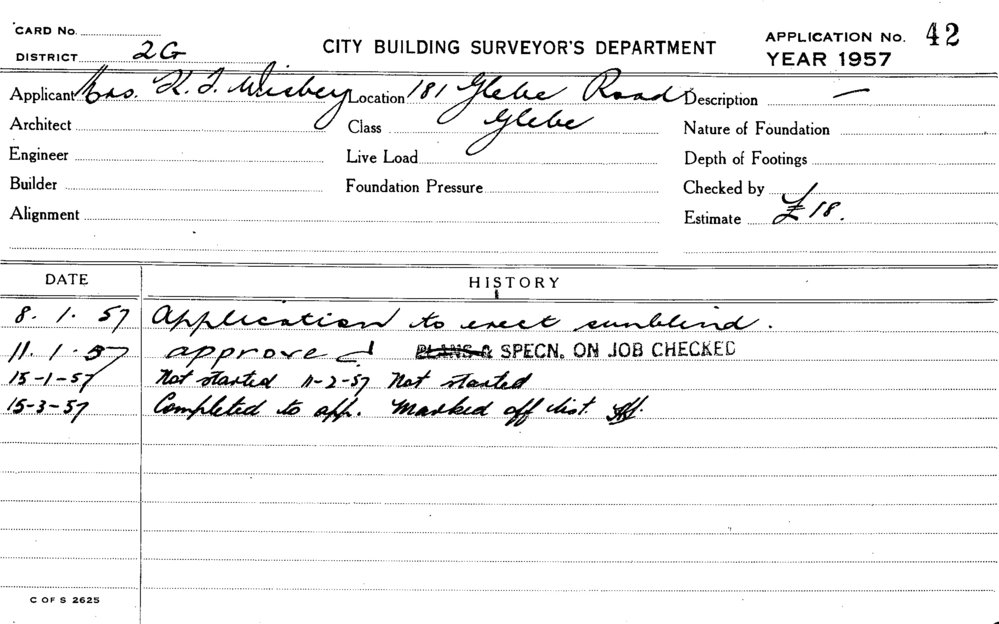 CARD No.
DISTRICT 2G
CITY BUILDING SURVEYOR'S DEPARTMENT
APPLICATION No. 42
YEAR 1957
Applicant Mrs. K. J. Location 181 Glebe Road Description —
Architect Class Glebe Nature of Foundation
Engineer Live Load Depth of Footings
Builder Foundation Pressure Checked by
Alignment Estimate £18.
DATE HISTORY
8. 1. 57 Application to erect sunblind.
11. 1. 57 approved PLANS & SPECN. ON JOB CHECKED
15-1-57 Not started 11-2-57 Not started
15-3-57 Completed to app. Marked off list.
C OF S 2625